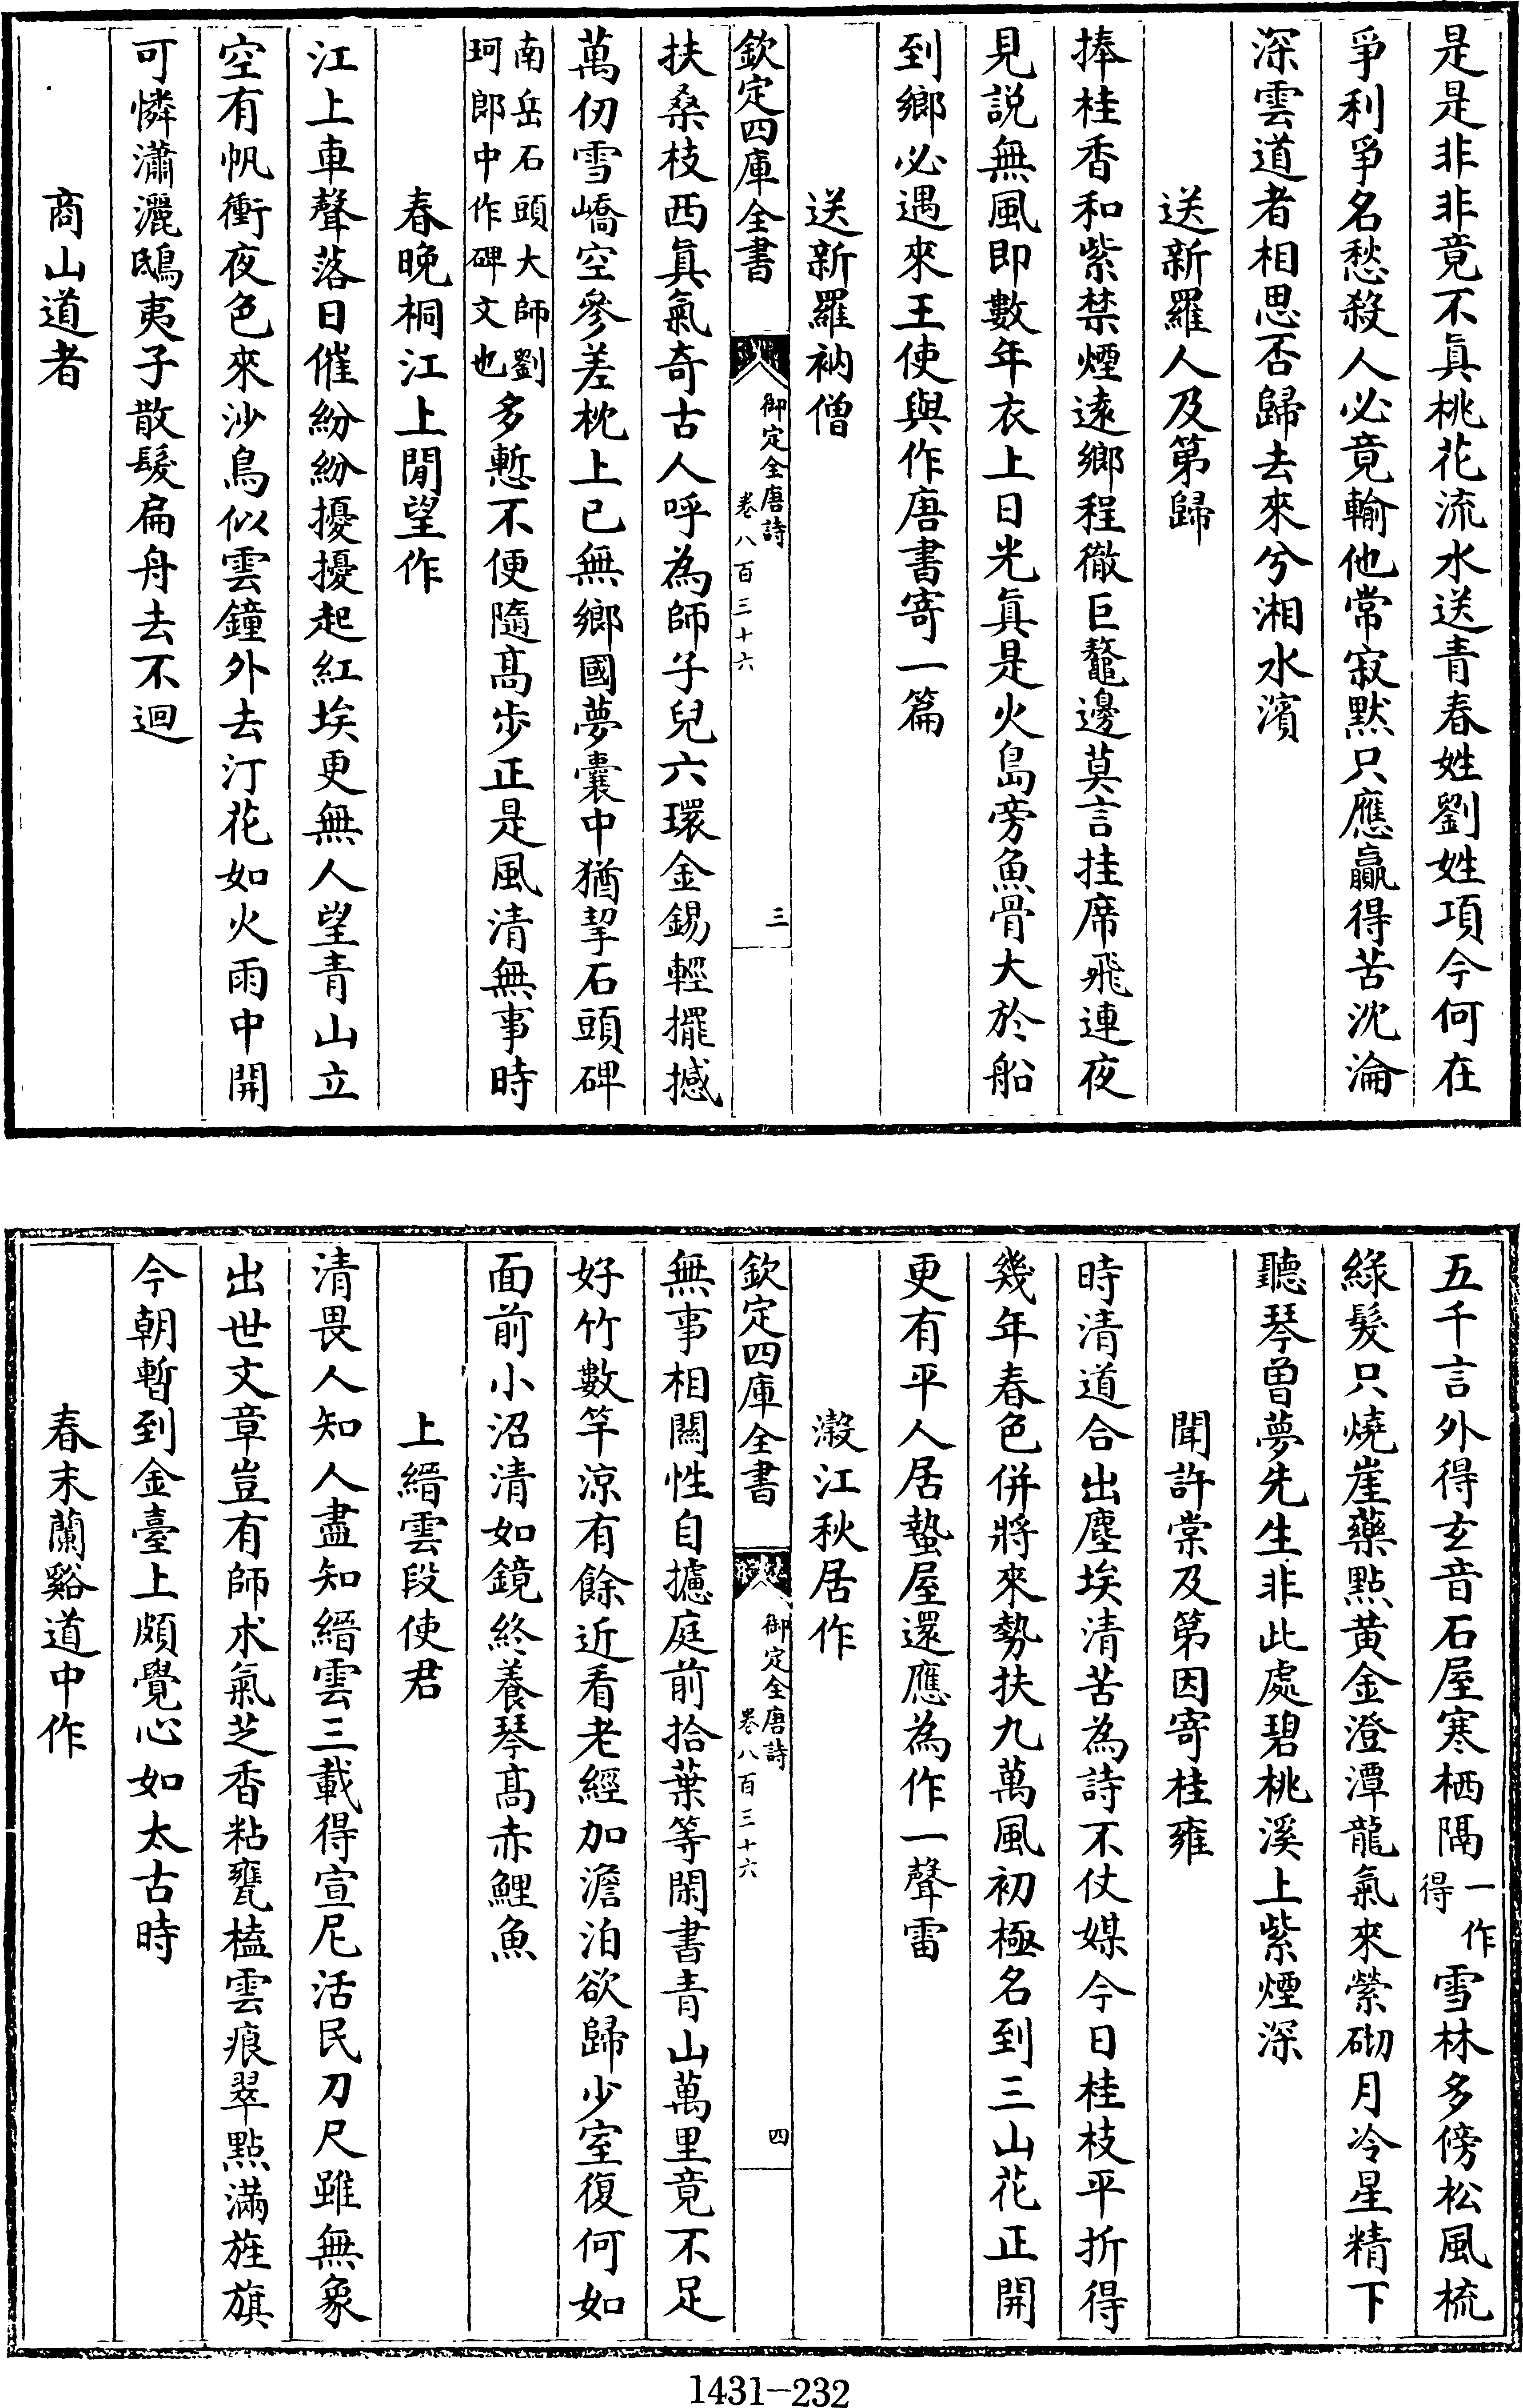 是是非非竟不真桃花流水送青春姓劉姓項今何在
爭利爭名愁殺人必竟輸他常寂默只應贏得苦沈淪
深雲道者相思否歸去來兮湘水濱
送新羅人及第歸
捧桂香和紫禁煙遠鄉程徹巨鼇邊莫言挂席飛連夜
見説無風即數年衣上日光真是火島旁魚骨大於船
到鄉必遇來王使與作唐書寄一篇
送新羅衲僧
欽定四庫全書 御定全唐詩 卷八百三十六 三
扶桑枝西真氣奇古人呼為師子兒六環金錫輕擺撼
萬仞雪嶠空參差枕上已無鄉國夢囊中猶挈石頭碑
南岳石頭大師劉
珂郎中作碑文也
多慙不便隨高步正是風清無事時
春晚桐江上閒望作
江上車聲落日催紛紛擾擾起紅埃更無人望青山立
空有帆衝夜色來沙鳥似雲鐘外去汀花如火雨中開
可憐瀟灑鴟夷子散髮扁舟去不迴
商山道者
五千言外得玄音石屋寒栖隔
一作
得
雪林多傍松風梳
綠髮只燒崖藥點黄金澄潭龍氣來縈砌月冷星精下
聽琴曾夢先生非此處碧桃溪上紫煙深
聞許棠及第因寄桂雍
時清道合出塵埃清苦為詩不仗媒今日桂枝平折得
幾年春色併將來勢扶九萬風初極名到三山花正開
更有平人居蟄屋還應為作一聲雷
瀔江秋居作
欽定四庫全書 御定全唐詩 卷八百三十六 四
無事相關性自攄庭前拾葉等閑書青山萬里竟不足
好竹數竿涼有餘近看老經加澹泊欲歸少室復何如
面前小沼清如鏡終養琴高赤鯉魚
上縉雲段使君
清畏人知人盡知縉雲三載得宣尼活民刀尺雖無象
出世文章豈有師朮氣芝香粘甕榼雲痕翠點滿旌旗
今朝暫到金臺上頗覺心如太古時
春末蘭谿道中作
1431-232